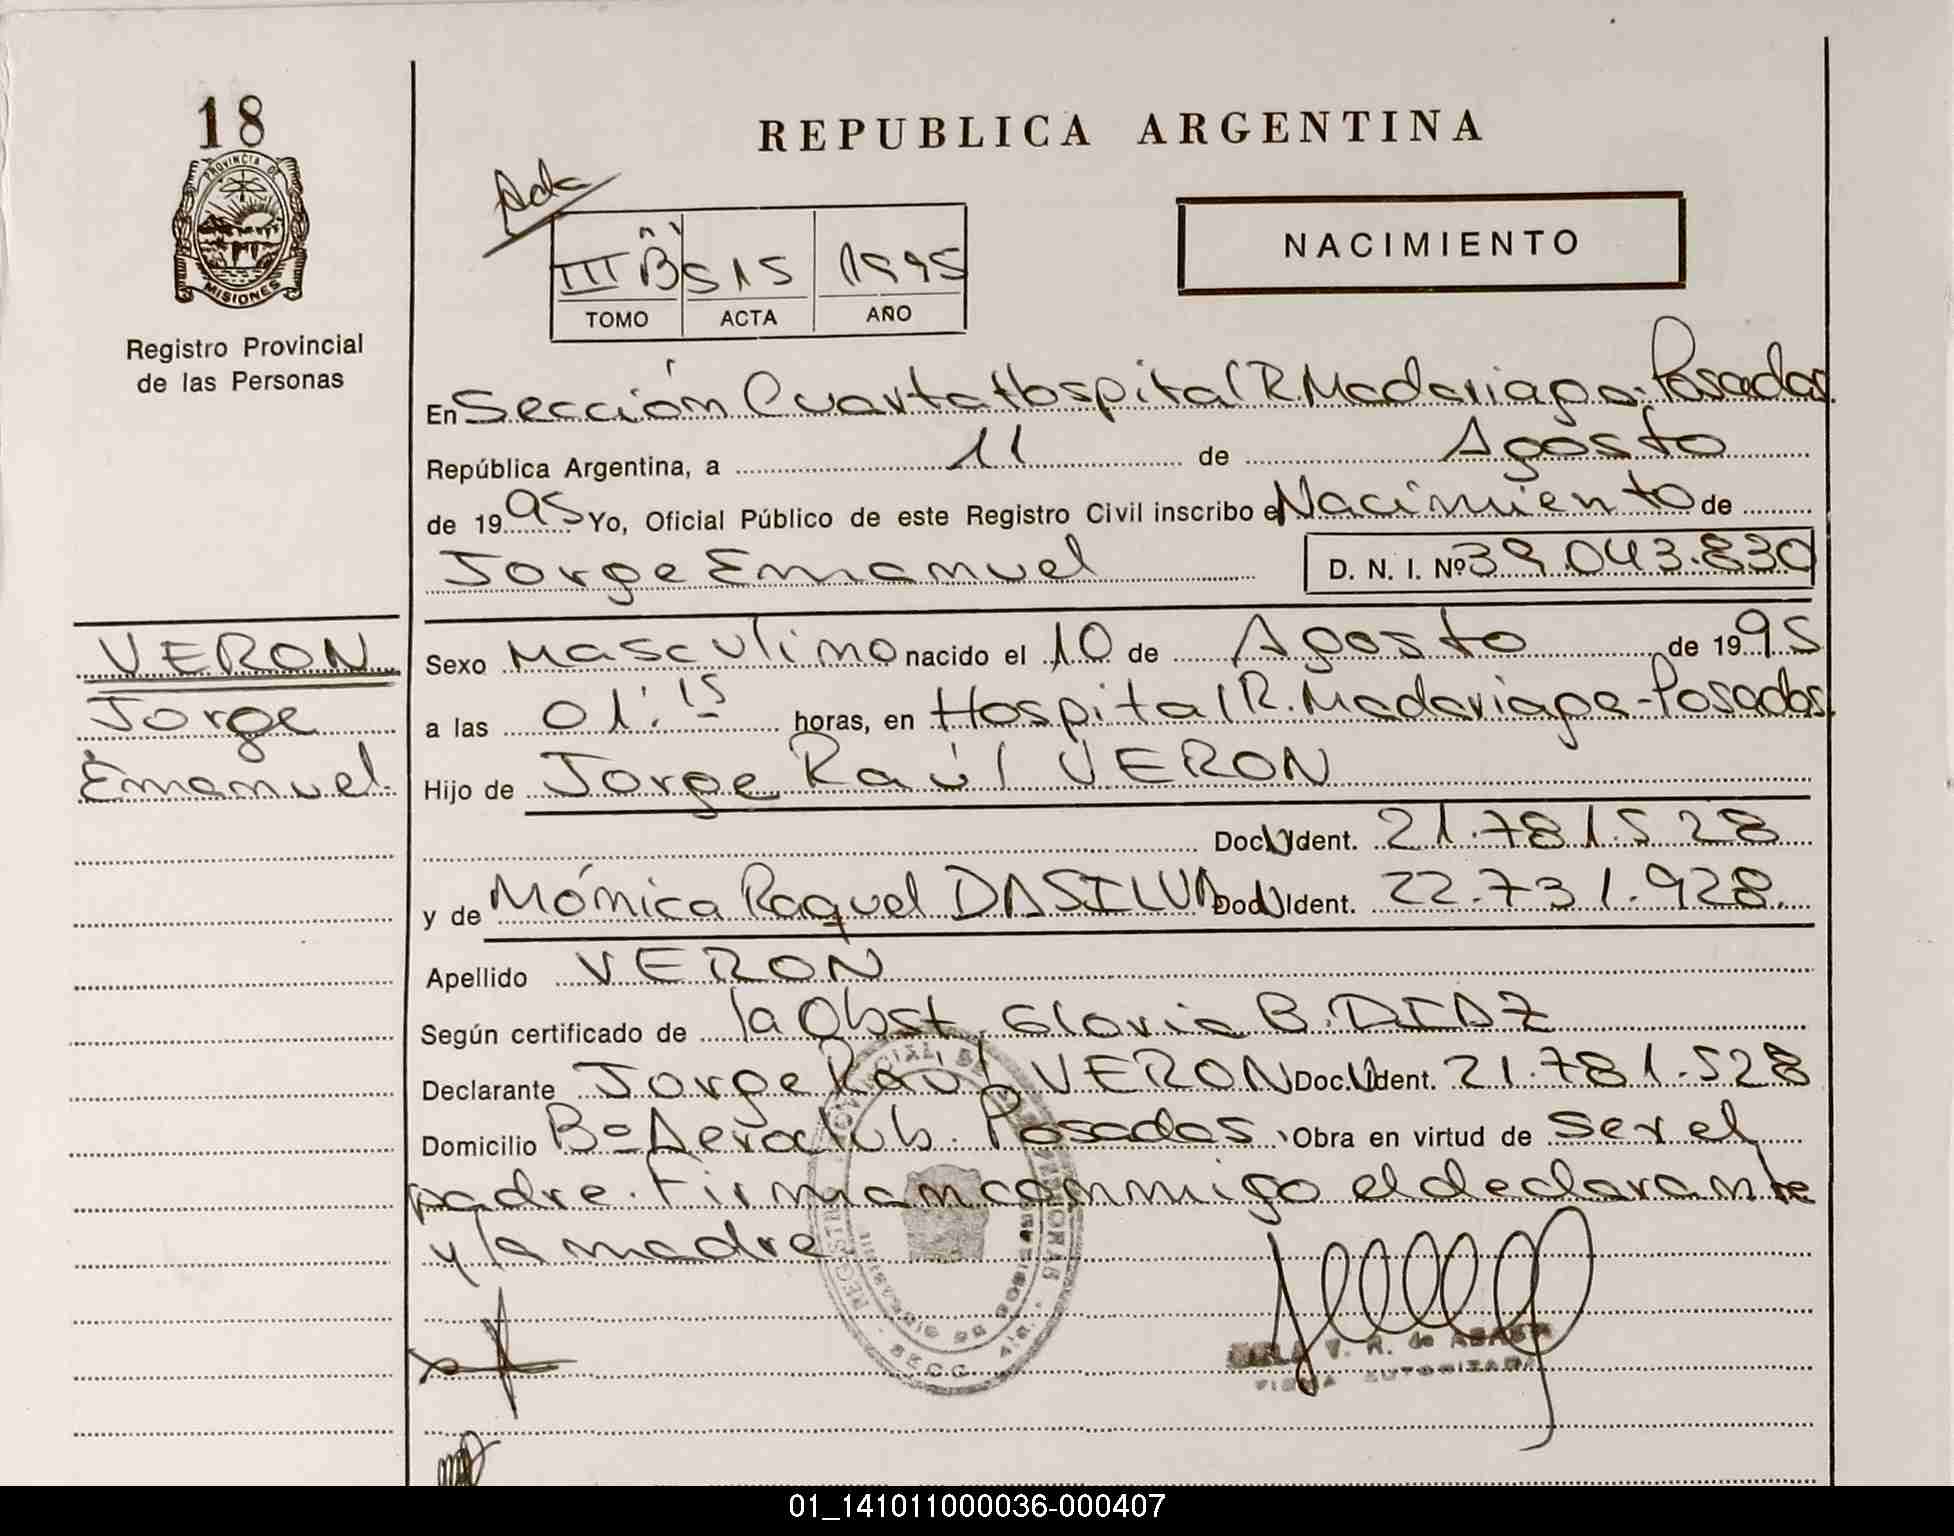 18
PROVINCIA DE
MISIONES
Registro Provincial
de las Personas
REPUBLICA ARGENTINA
NACIMIENTO
III B̃ 515 1995
TOMO ACTA AÑO
En Sección Cuarta Hospital R. Madariaga. Posadas.
República Argentina, a 11 de Agosto
de 1995 Yo, Oficial Público de este Registro Civil inscribo el Nacimiento de
Jorge Emanuel D. N. I. Nº 39.043.830
VERON
Jorge
Emanuel.
Sexo Masculino nacido el 10 de Agosto de 1995
a las 01:15 horas, en Hospital R. Madariaga - Posadas.
Hijo de Jorge Raúl VERON
Doc. Ident. 21.781.528
y de Mónica Raquel DASILVA Doc. Ident. 22.731.928.
Apellido VERON
Según certificado de la Obst. Gloria B. DIAZ
Declarante Jorge Raúl VERON Doc. Ident. 21.781.528
Domicilio Bº Aeroclub. Posadas. Obra en virtud de ser el
padre. Firman conmigo el declarante
y la madre
FIRMA AUTORIZADA
01_141011000036-000407